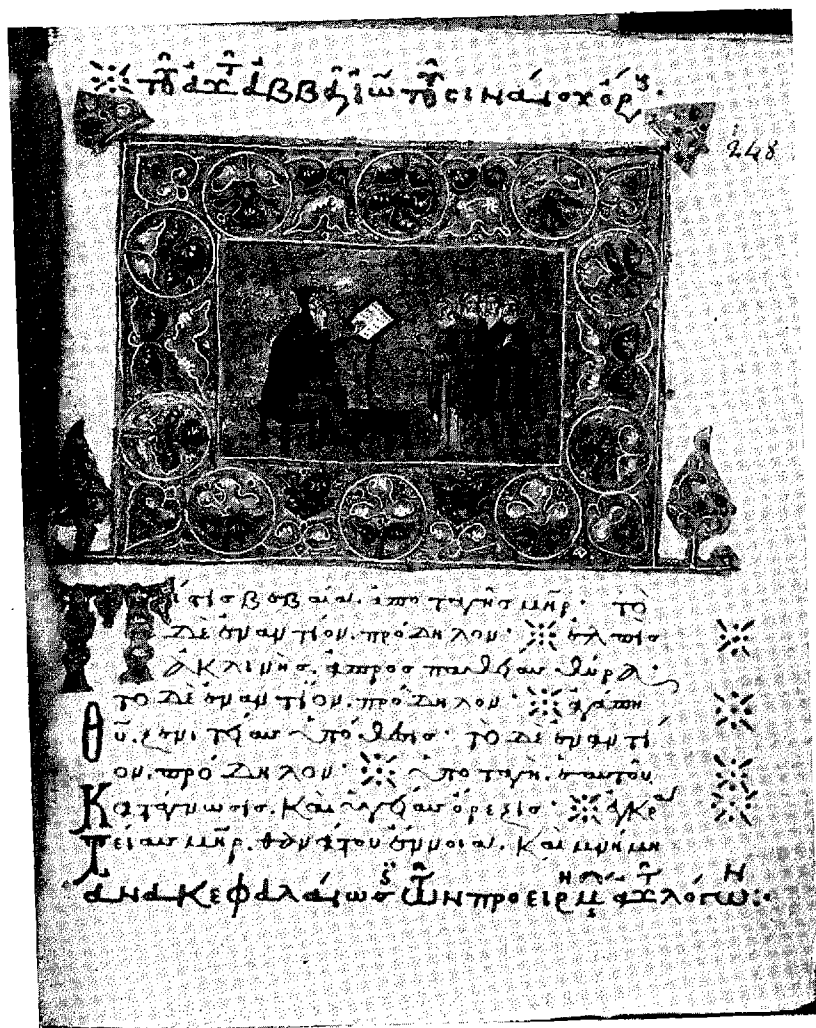 ἀββᾶ ἰω τοῦ
248
Πίστις βεβαία, ἀποταγῆς μηρ · τὸ
δὲ ἐναντίον, πρόδηλον · ἐλπὶς
ἀκλινὴς, ἀπροσπαθείας θύρα ·
τὸ δὲ ἐναντίον, πρόδηλον · ἀγάπη
θυ, ξενιτείας ὑπόθεσις · τὸ δὲ ἐναντί
ον, πρόδηλον · ὑποταγὴν, ἑαυτοῦ
κατάγνωσις, καὶ ὑγείας ὄρεξις · ἐγκρ
τείας μηρ, θανάτου ἔννοια, καὶ μνήμη
ἀνακεφαλαίωσ τῶν προειρημ λόγων